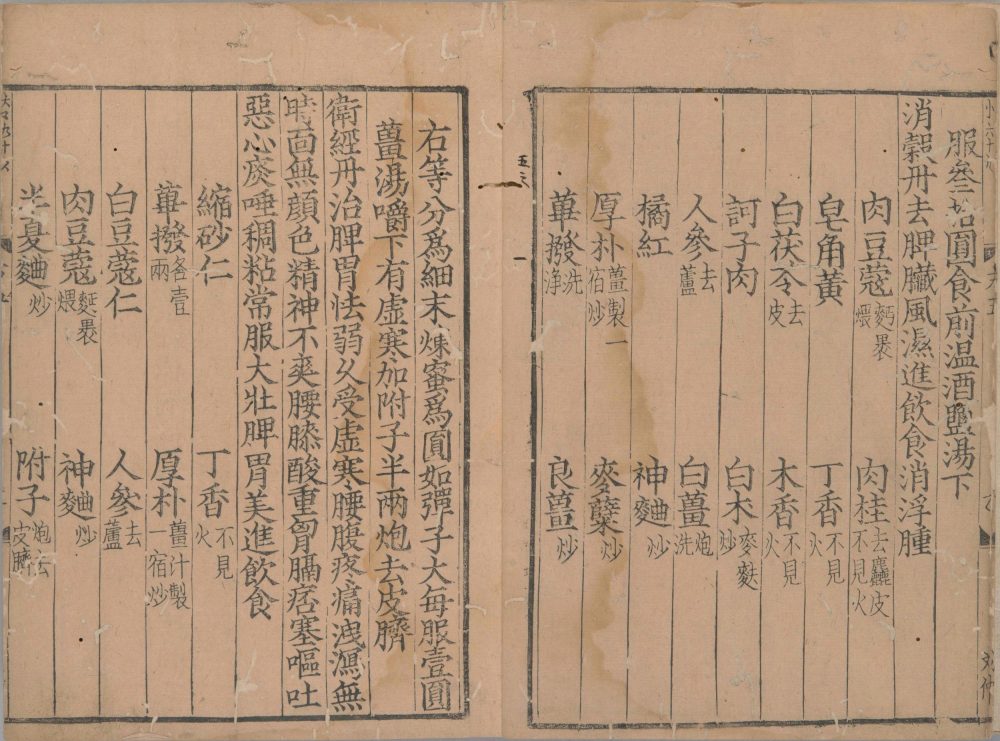 服叁拾圓食前温酒鹽湯下
消穀丹去脾臟風濕進飲食消浮腫
肉豆蔻麪裹煨 肉桂去麤皮不見火
皂角黃 丁香不見火
白茯苓去皮 木香不見火
訶子肉 白术麥麩炒
人參去蘆 白薑炮洗
橘紅 神麯炒
厚朴薑製一宿炒 麥糵炒
蓽撥洗浄 良薑炒
右等分爲細末煉蜜爲圓如彈子大每服壹圓
薑湯嚼下有虛寒加附子半兩炮去皮臍
衛經丹治脾胃怯弱久受虛寒腰腹疼痛洩瀉無
時面無顔色精神不爽腰膝酸重胷膈痞塞嘔吐
惡心痰唾稠粘常服大壯脾胃美進飲食
縮砂仁 丁香不見火
蓽撥各壹兩 厚朴薑汁製一宿炒
白豆蔻仁 人參去蘆
肉豆蔻麪裹煨 神麯炒
半夏麯炒 附子炮去皮臍